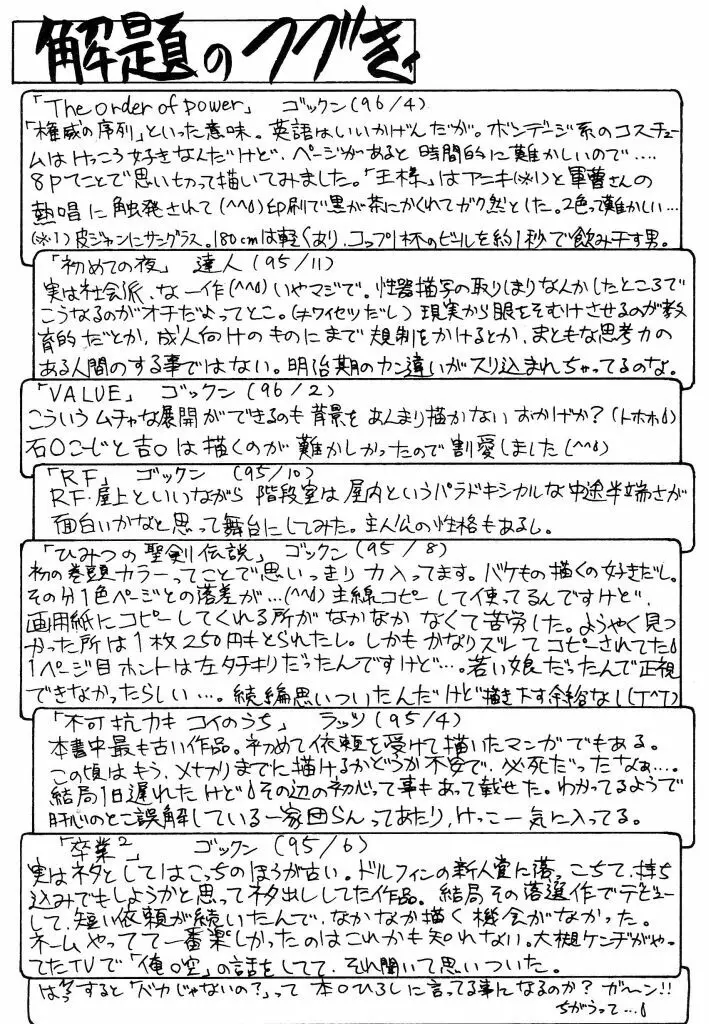 解題のつづき
「The order of power」 ゴックン(96/4)
「権威の序列」といった意味。英語はいいかげんだが。ボンデージ系のコスチュー
ムはけっこう好きなんだけど、ページがあると時間的に難かしいので‥‥
8Pてことで思い切って描いてみました。「王様」はアニキ(※1)と軍曹さんの
熱唱に触発されて(^^δ)印刷で黒が茶にかくれてガク然とした。2色って難かしい…
(※1)皮ジャンにサングラス。180cmは軽くあり、コップ1杯のビールを約1秒で飲み干す男。
「初めての夜」 達人(95/11)
実は社会派、な一作(^^δ)いやマジで。性器描写の取りしまりなんかしたところで
こうなるのがオチだよってとこ。(チワイセツだし)現実から眼をそむけさせるのが教
育的だとか、成人向けのものにまで規制をかけるとか、まともな思考力の
ある人間のする事ではない。明治期のカン違いがスリ込まれちゃってるのな。
「VALUE」 ゴックン(96/2)
こういうムチャな展開ができるのも背景をあんまり描かないおかげか?(トホホδ)
石〇こーじと吉〇は描くのが難かしかったので割愛しました(^^δ)
「RF」 ゴックン (95/10)
RF・屋上といいながら階段室は屋内というパラドキシカルな中途半端さが
面白いかなと思って舞台にしてみた。主人公の性格もあるし。
「ひみつの聖剣伝説」 ゴックン(95/8)
初の巻頭カラーってことで思いっきり力入ってます。バケもの描くの好きだし。
その分1色ページとの落差が…(^^δ)主線コピーして使ってるんですけど、
画用紙にコピーしてくれる所がなかなかなくて苦労した。ようやく見つ
かった所は1枚250円もとられたし。しかもかなりズレてコピーされてたδ
1ページ目ホントは左タチキリだったんですけど…。若い娘だったんで正視
できなかったらしい…。続編思いついたんだけど描き下す余裕なし(T^T)
「不可抗力キコイのうち」 ラッツ(95/4)
本書中最も古い作品。初めて依頼を受けて描いたマンガでもある。
この頃はもう、〆切りまでに描けるかどうか不安で、必死だったなぁ…。
結局1日遅れたけどδその辺の初心って事もあって載せた。わかってるようで
肝心のとこ誤解している一家団らんってあたり、けっこー気に入ってる。
「卒業²」 ゴックン(95/6)
実はネタとしてはこっちのほうが古い。ドルフィンの新人賞に落っこちて、持ち
込みでもしようかと思ってネタ出ししてた作品。結局その落選作でデビュー
して、短い依頼が続いたんで、なかなか描く機会がなかった。
ネームやってて一番楽しかったのはこれかも知れない。大槻ケンヂがや
てたTVで「俺〇空」の話をしてて、それ聞いて思いついた。
すると「バカじゃないの?」って本〇ひろしに言ってる事になるのか?ガーン!!
ちがうって…δ